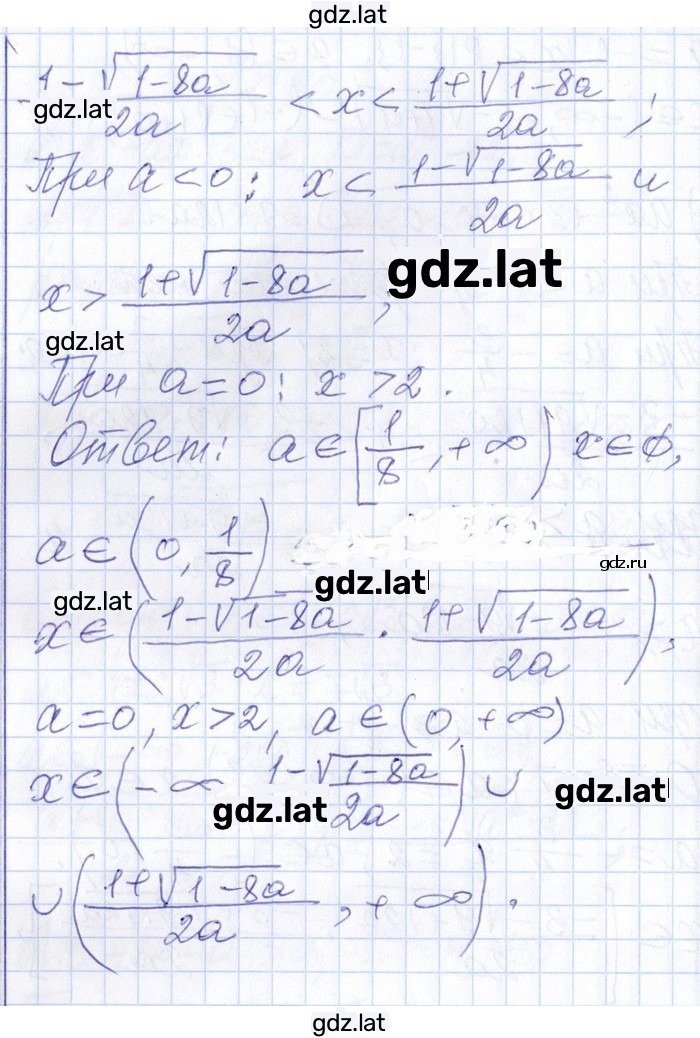 gdz.lat
(1-√(1-8a))/2a < x < (1+√(1-8a))/2a ;
gdz.lat
При a<0: x < (1-√(1-8a))/2a и
gdz.lat
x > (1+√(1-8a))/2a ;
gdz.lat
При a=0: x>2.
Ответ: a∈[1/8, +∞) x∈ϕ,
a∈(0, 1/8)
gdz.ru
gdz.lat
gdz.lat
x∈((1-√(1-8a))/2a . (1+√(1-8a))/2a),
a=0, x>2, a∈(0, +∞)
x∈(-∞ (1-√(1-8a))/2a) ∪
gdz.lat
gdz.lat
∪((1+√(1-8a))/2a, +∞).
gdz.lat